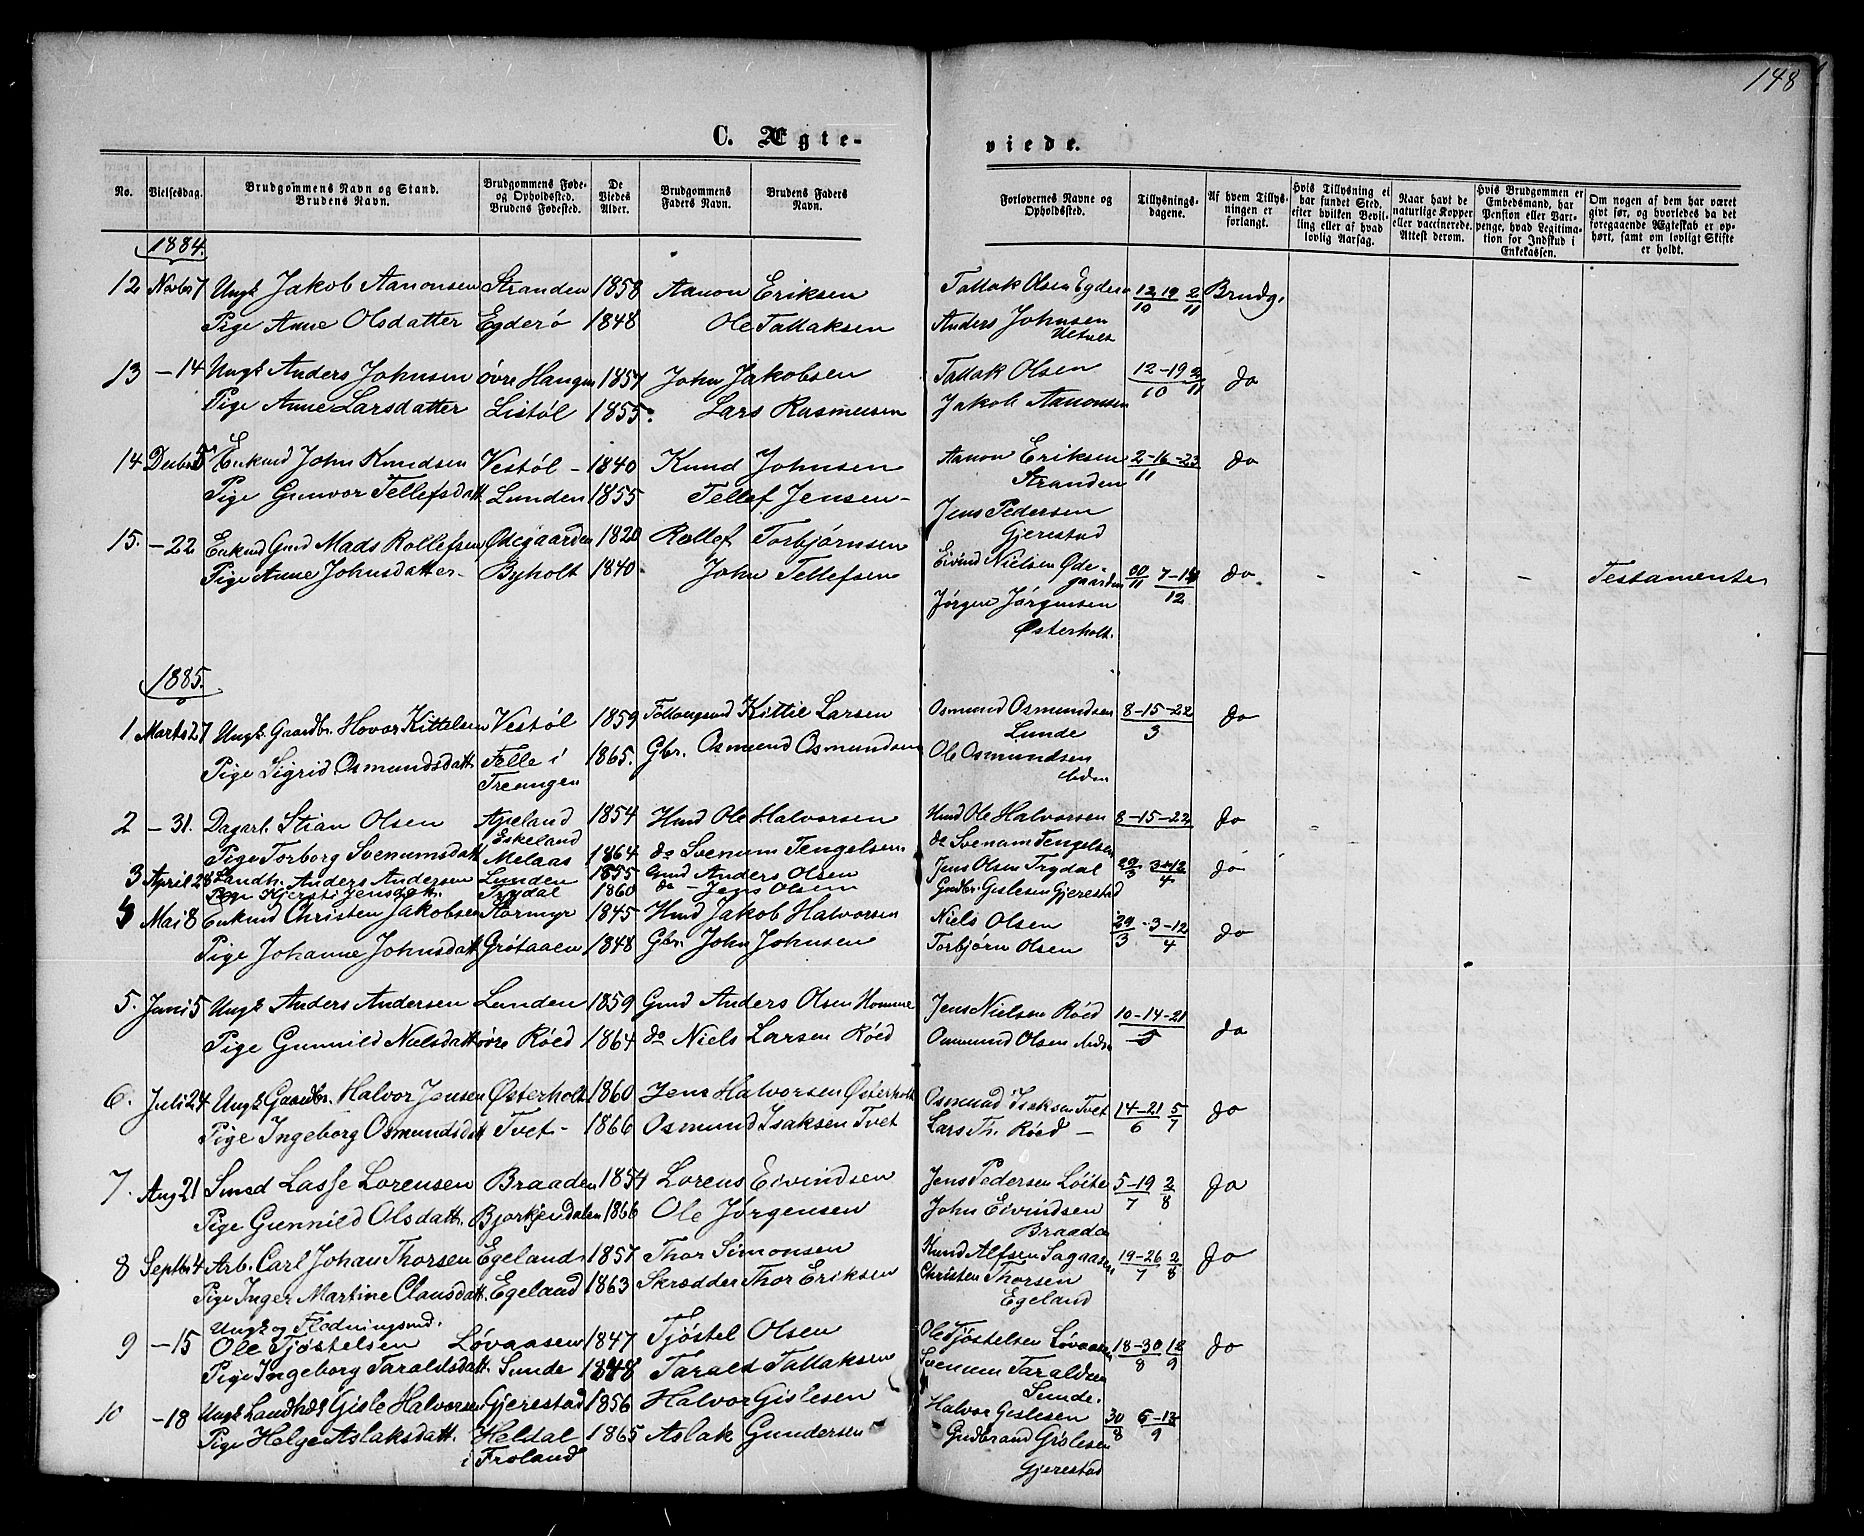 148
C. Ægte-
viede.
No.
Vielsesdag.
Brudgommens Navn og Stand.
Brudens Navn.
Brudgommens Føde-
og Opholdssted.
Brudens Fødested.
De
Viedes
Alder.
Brudgommens
Faders Navn.
Brudens Faders
Navn.
Forlovernes Navne og
Opholdssted.
Tillysnings-
dagene.
Af hvem Tillys-
ningen er
forlangt.
Hvis Tillysning ei
har fundet Sted,
efter hvilken Bevil-
ling eller af hvad
lovlig Aarsag.
Naar havt de
naturlige Kopper
eller vaccinerede.
Attest derom.
Hvis Brudgommen er
Embedsmand, har
Pension eller Vart-
penge, hvad Legitima-
tion for Indskud i
Enkekassen.
Om nogen af dem har været
givt før, og hvorledes da det
foregaaende Ægteskab er op-
hørt, samt om lovligt Skifte
er holdt.
1884.
12 Novbr 7 Ungk Jakob Aanonsen Stranden 1858 Aanon Eriksen Tallak Olsen Egderø 12 19/10 2/11 Brudg.
Pige Anne Olsdatter Egderø 1848 Ole Tallaksen Anders Johnsen
13 – 14 Ungk Anders Johnsen øvre Hangen 1857 John Jakobsen Tallak Olsen 12 – 19/10 2/11 do
Pige Anne Larsdatter Listøl 1855. Lars Rasmusen Jakob Aanonsen
14 Decbr 5 Enkmd John Knudsen Vestøl – 1840 Knud Johnsen Aanon Eriksen 2–16–23/11 do
Stranden
Pige Gunvor Tellefsdatt Lunden 1855 Tellef Jensen – Jens Pedersen
Gjerestad
15. – 22 Enkmd Gmd Mads Rollefsen Ødegaarden 1820 Rollef Torbjørnsen Eivind Nielsen Øde-
gaarden 30/11 7–14/12 do. – – – Testamente
Pige Anne Johnsdatter – Byholt 1840. John Tellefsen Jørgen Jørgensen
Østerholt.
1885.
1 Marts 27 Ungk. Gaardbr. Hovor Kittelsen Vestøl 1859 Kittil Larsen Osmund Osmundsen 8–15–22/3 do
Lunde
Pige Sigrid Osmundsdatt Felle i 1865. Gbr. Osmund Osmundsen Ole Osmundsen
Treungen
2 – 31. Dagarb. Stian Olsen Apeland 1854 Hmd Ole Halvorsen Hmd Ole Halvorsen 8–15–22 do
Eskeland
Pige Torborg Svenumsdatt Melaas 1864 do Svenum Tengelsen do Svenum Tengelsen
3 April 28 Landh. Anders Andersen Lunden 1855 Gmd Anders Olsen Jens Olsen Trydal 29/3 3–12/4 do
Pige Kjersti Jensdatt. Trydal 1860 do – Jens Olsen Gudbr. Gislesen Gjerestad
4 Mai 8 Enkmd Christen Jakobsen Stormyr 1845 Hmd Jakob Halvorsen Niels Olsen 29/3 – 3–12/4 do
Pige Johanne Johnsdatt Grøtaaen 1848 Gbr. John Johnsen Torbjørn Olsen
5. Juni 5 Ungk Anders Andersen Lunden 1859 Gmd Anders Olsen Homme Jens Nielsen Røed 10–14–21/5 do
Pige Gunnild Nielsdatt øvre Røed 1864 do Niels Larsen Røed Osmund Olsen
6. Juli 24 Ungk Gaardbr. Halvor Jensen Østerholt 1860 Jens Halvorsen Østerholt Osmund Isaksen Tvet 14–21/6 5/7 do
Pige Ingeborg Osmundsdatt Tvet – 1866 Osmund Isaksen Tvet Lars Th. Røed –
7. Aug 21 Smed Lasse Lorensen Braaden 1854 Lorens Eivindsen Jens Pedersen Løite 5–19/7 2/8 do
Pige Gunnild Olsdatt. Bjorkjendalen 1866 Ole Jørgensen John Eivindsen
Braaden
8 Septbr 4 Arb. Carl Johan Thorsen Egeland 1857 Thor Simonsen Knud Alfsen Sagaasen 19–26/7 2/8 do
Pige Inger Martine Clausdatt. Egeland 1863 Skrædder Thor Eriksen Christen Thorsen
Egeland
Ungk og Flødningsmd.
9 – 15 Ole Tjøstelsen Løvaasen 1847 Tjøstel Olsen Ole Tjøstelsen Løvaasen 18–30/8 12/9 do
Pige Ingeborg Taraldsdatt Sunde 1848 Tarald Tallaksen Svenum Taraldsen
Sunde.
10 – 18 Ungk Landh. Gisle Halvorsen Gjerestad 1856 Halvor Gislesen Halvor Gislesen 30/8 6–13/9
Pige Helge Aslaksdatt. Heldal 1865 Aslak Gundersen Gudbrand Gislesen
i Froland Gjerestad